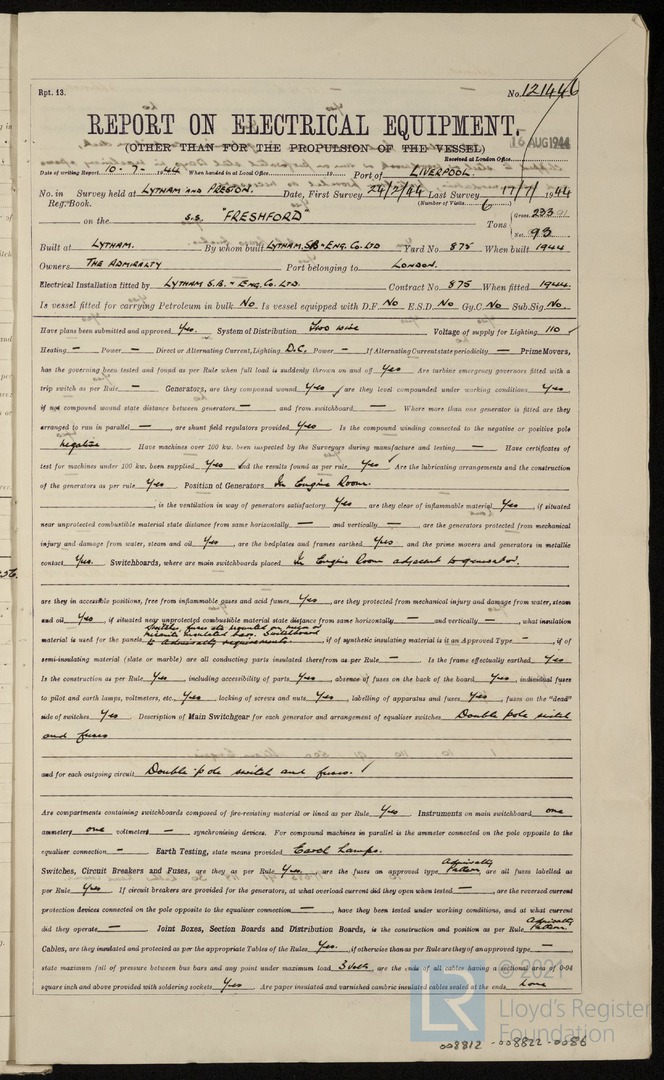 Rpt. 13.
No. 121446
REPORT ON ELECTRICAL EQUIPMENT.
(OTHER THAN FOR THE PROPULSION OF THE VESSEL)
16 AUG 1944
Received at London Office
Date of writing Report 10-7-1944 When handed in at Local Office 19 Port of LIVERPOOL.
No. in Survey held at LYTHAM AND PRESTON. Date, First Survey 24/2/44 Last Survey 17/7/1944
Reg. Book. (Number of Visits 6)
on the S.S. "FRESHFORD" Tons { Gross 233
Net 93
Built at LYTHAM. By whom built LYTHAM. SB & ENG. CO. LTD Yard No. 875 When built 1944
Owners THE ADMIRALTY Port belonging to LONDON.
Electrical Installation fitted by LYTHAM S.B. & ENG. CO. LTD. Contract No. 875 When fitted 1944.
Is vessel fitted for carrying Petroleum in bulk No. Is vessel equipped with D.F. No E.S.D. No Gy.C. No Sub.Sig. No.
Have plans been submitted and approved Yes. System of Distribution Two wire Voltage of supply for Lighting 110
Heating - Power - Direct or Alternating Current, Lighting D.C. Power - If Alternating Current state periodicity - Prime Movers,
has the governing been tested and found as per Rule when full load is suddenly thrown on and off Yes Are turbine emergency governors fitted with a
trip switch as per Rule - Generators, are they compound wound Yes, are they level compounded under working conditions Yes,
if not compound wound state distance between generators - and from switchboard - Where more than one generator is fitted are they
arranged to run in parallel -, are shunt field regulators provided Yes. Is the compound winding connected to the negative or positive pole
negative Have machines over 100 kw. been inspected by the Surveyors during manufacture and testing - Have certificates of
test for machines under 100 kw. been supplied Yes and the results found as per rule Yes Are the lubricating arrangements and the construction
of the generators as per rule Yes Position of Generators In Engine Room.
, is the ventilation in way of generators satisfactory Yes are they clear of inflammable material Yes, if situated
near unprotected combustible material state distance from same horizontally - and vertically -, are the generators protected from mechanical
injury and damage from water, steam and oil Yes, are the bedplates and frames earthed Yes and the prime movers and generators in metallic
contact Yes. Switchboards, where are main switchboards placed In Engine Room adjacent to generator.
are they in accessible positions, free from inflammable gases and acid fumes Yes, are they protected from mechanical injury and damage from water, steam
and oil Yes, if situated near unprotected combustible material state distance from same horizontally - and vertically -, what insulation
material is used for the panels Switches, fuses etc mounted on insulated bars. Switchboard to Admiralty requirements., if of synthetic insulating material is it an Approved Type -, if of
semi-insulating material (slate or marble) are all conducting parts insulated therefrom as per Rule - Is the frame effectually earthed Yes
Is the construction as per Rule Yes, including accessibility of parts Yes, absence of fuses on the back of the board Yes, individual fuses
to pilot and earth lamps, voltmeters, etc. Yes, locking of screws and nuts Yes, labelling of apparatus and fuses Yes, fuses on the "dead"
side of switches Yes. Description of Main Switchgear for each generator and arrangement of equaliser switches Double pole switch
and fuses
and for each outgoing circuit Double-pole switch and fuses.
Are compartments containing switchboards composed of fire-resisting material or lined as per Rule Yes Instruments on main switchboard one
ammeters one voltmeters - synchronising devices. For compound machines in parallel is the ammeter connected on the pole opposite to the
equaliser connection - Earth Testing, state means provided Earth Lamps.
Switches, Circuit Breakers and Fuses, are they as per Rule Yes, are the fuses an approved type Admiralty Pattern are all fuses labelled as
per Rule Yes If circuit breakers are provided for the generators, at what overload current did they open when tested -, are the reversed current
protection devices connected on the pole opposite to the equaliser connection -, have they been tested under working conditions, and at what current
did they operate - Joint Boxes, Section Boards and Distribution Boards, is the construction and position as per Rule Admiralty Pattern
Cables, are they insulated and protected as per the appropriate Tables of the Rules Yes, if otherwise than as per Rule are they of an approved type -
state maximum fall of pressure between bus bars and any point under maximum load 3 Volts, are the ends of all cables having a sectional area of 0·04
square inch and above provided with soldering sockets Yes Are paper insulated and varnished cambric insulated cables sealed at the ends none
© 2021
LR
Lloyd's Register
Foundation
008812-008822-0086